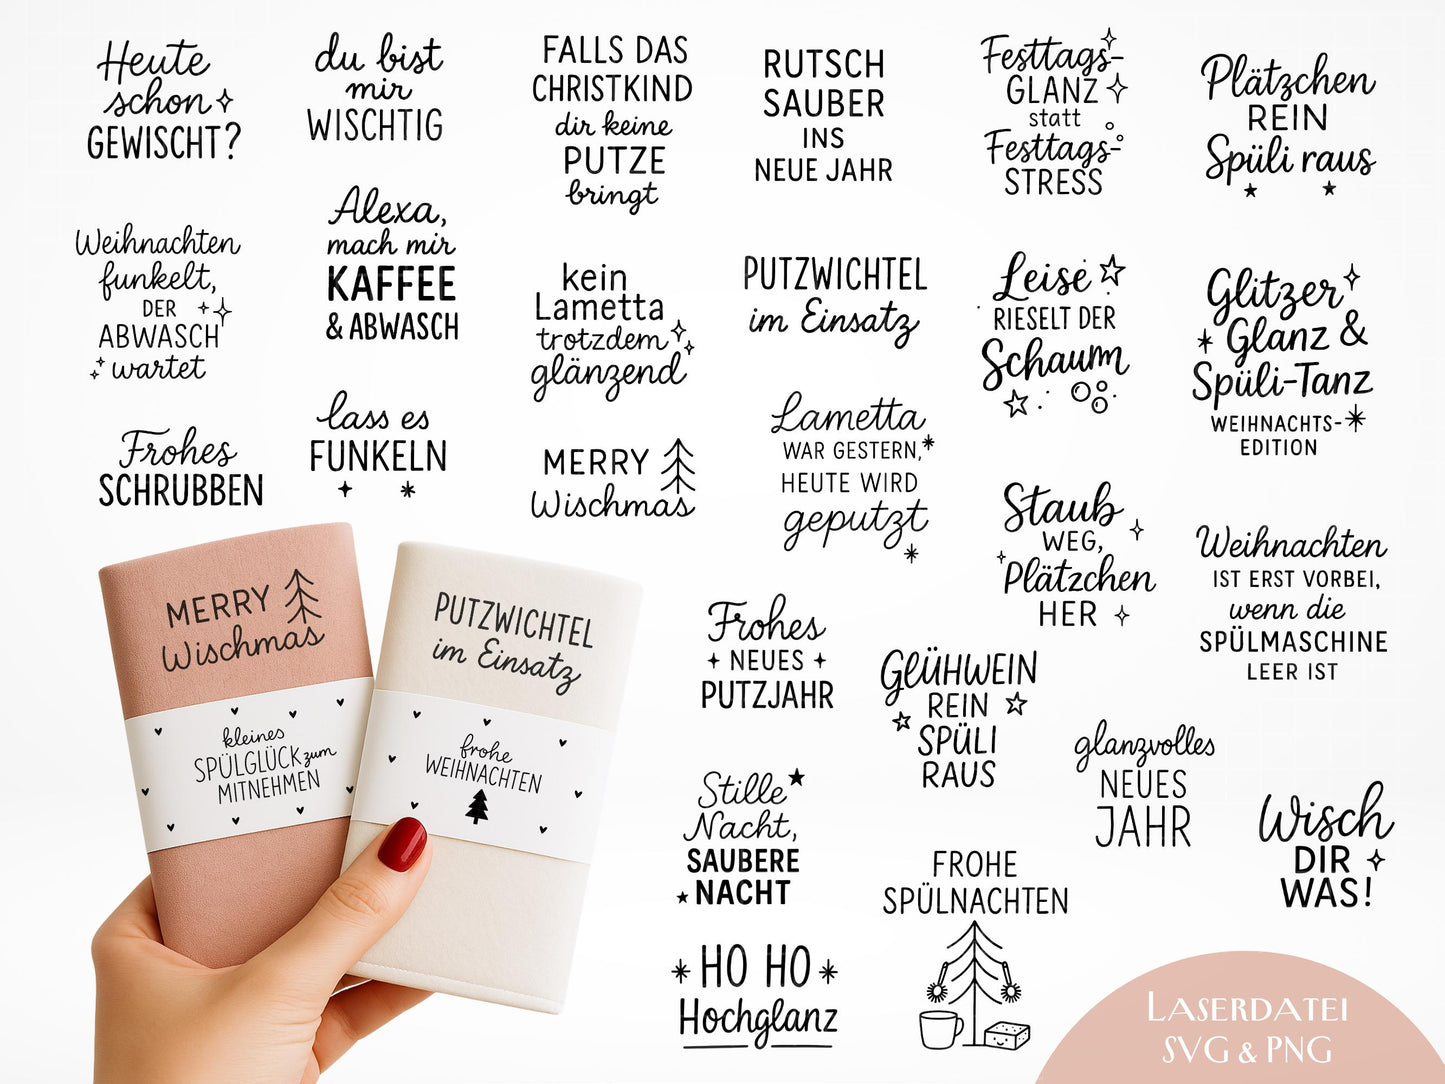 Heute
schon
GEWISCHT?
du bist
mir
WISCHTIG
FALLS DAS
CHRISTKIND
dir keine
PUTZE
bringt
RUTSCH
SAUBER
INS
NEUE JAHR
Festtags-
GLANZ
statt
Festtags-
STRESS
Plätzchen
REIN
Spüli raus
Weihnachten
funkelt,
DER
ABWASCH
wartet
Alexa,
mach mir
KAFFEE
& ABWASCH
kein
Lametta
trotzdem
glänzend
PUTZWICHTEL
im Einsatz
Leise
RIESELT DER
Schaum
Glitzer
Glanz &
Spüli-Tanz
WEIHNACHTS-
EDITION
Frohes
SCHRUBBEN
lass es
FUNKELN
MERRY
Wischmas
Lametta
WAR GESTERN,
HEUTE WIRD
geputzt
Staub
WEG,
Plätzchen
HER
Weihnachten
IST ERST VORBEI,
wenn die
SPÜLMASCHINE
LEER IST
MERRY
Wischmas
kleines
SPÜLGLÜCK zum
MITNEHMEN
PUTZWICHTEL
im Einsatz
frohe
WEIHNACHTEN
Frohes
NEUES
PUTZJAHR
GLÜHWEIN
REIN
SPÜLI
RAUS
glanzvolles
NEUES
JAHR
Stille
Nacht,
SAUBERE
NACHT
FROHE
SPÜLNACHTEN
Wisch
DIR
WAS!
HO HO
Hochglanz
LASERDATEI
SVG & PNG